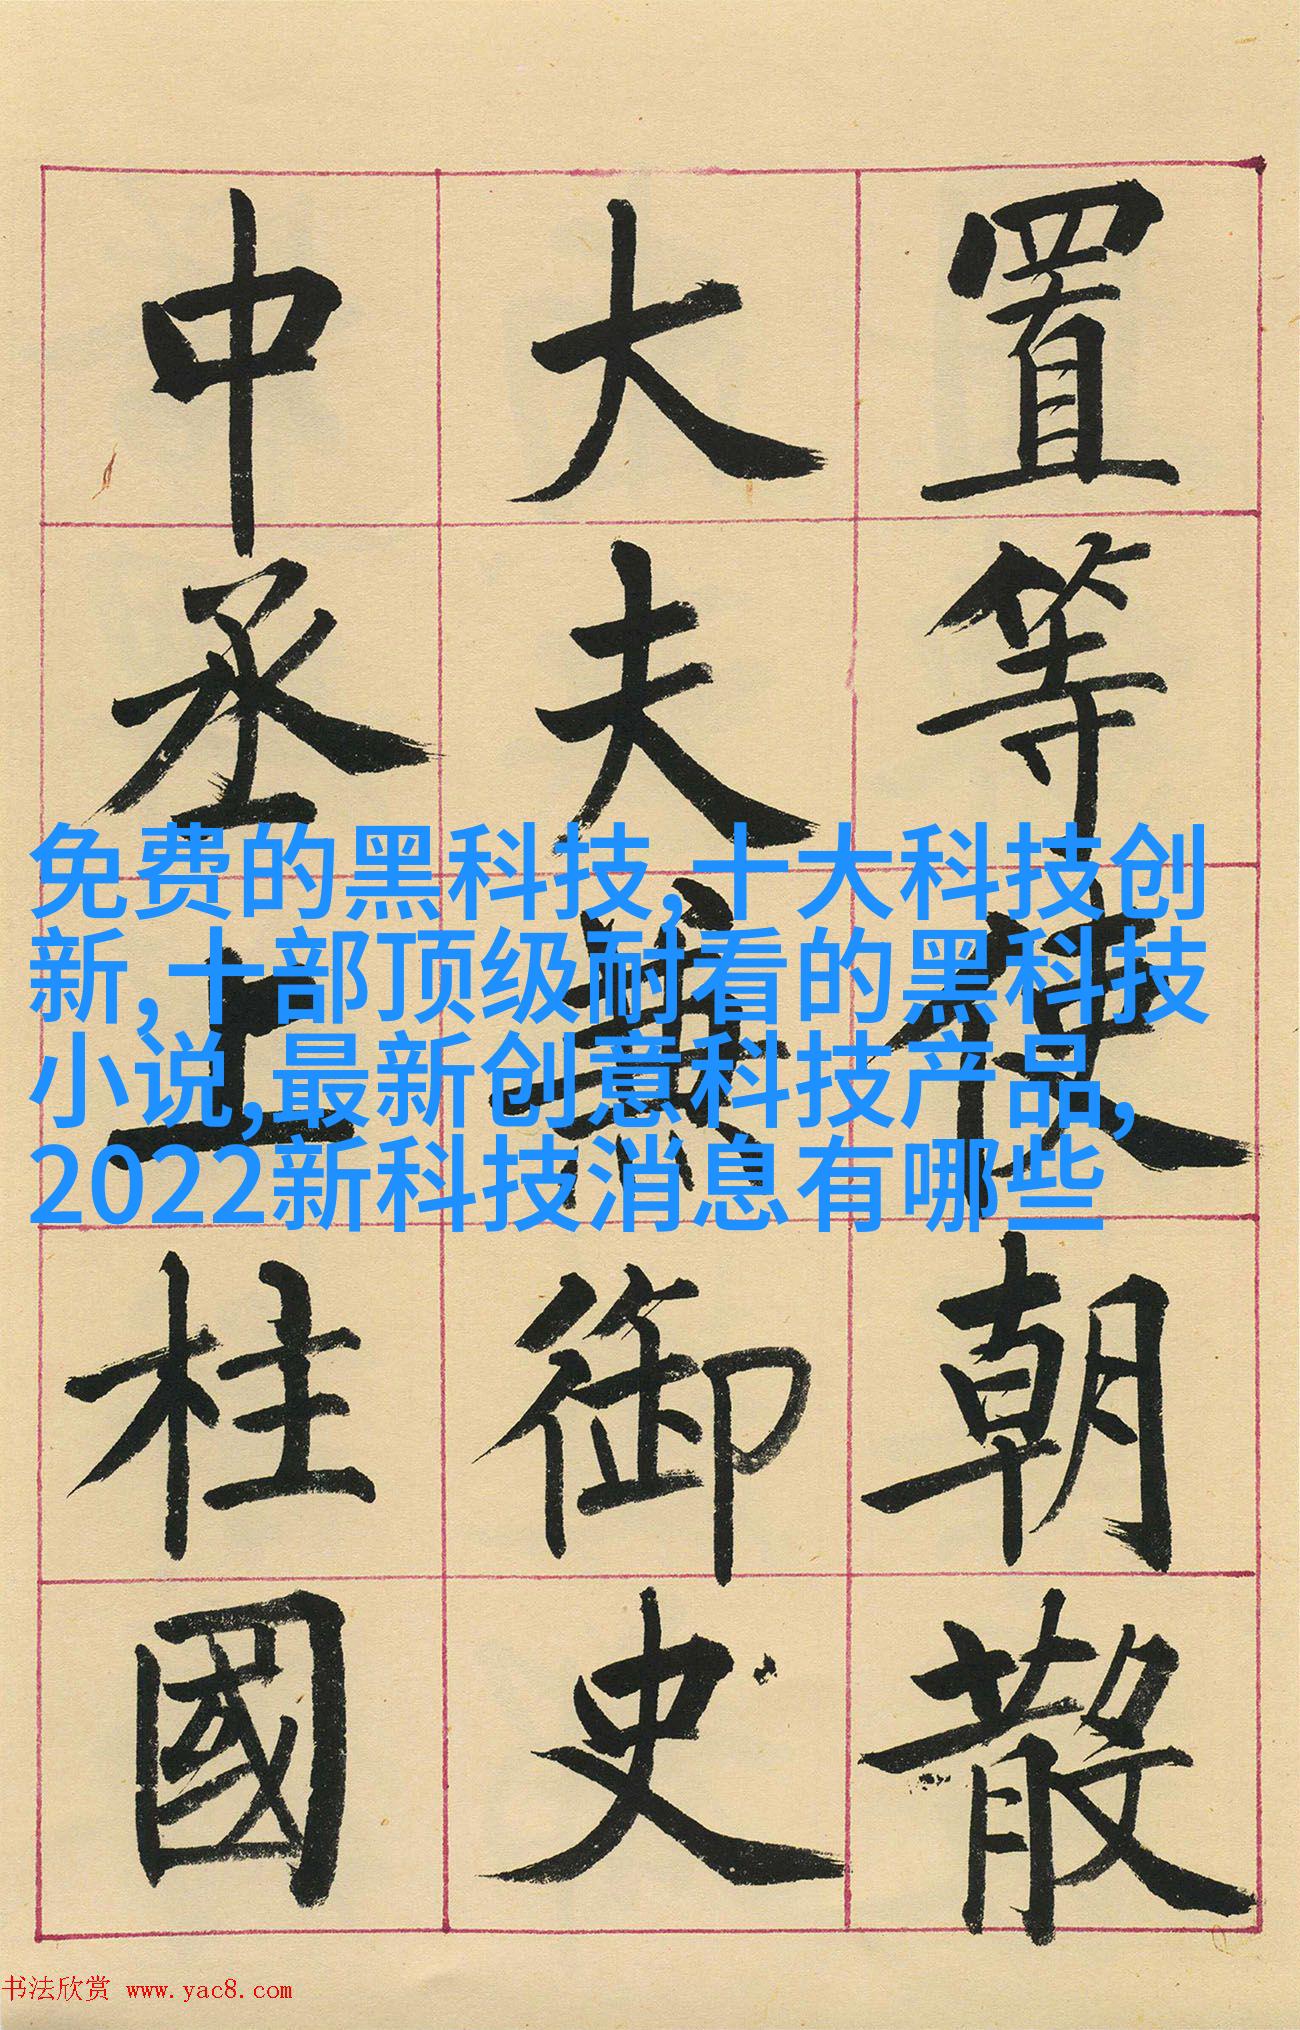 置等使朝散
大夫兼御史
中丞上柱國
免费的黑科技,十大科技创
新,十部顶级耐看的黑科技
小说,最新创意科技产品,
2022新科技消息有哪些
书法欣赏 www.yac8.com